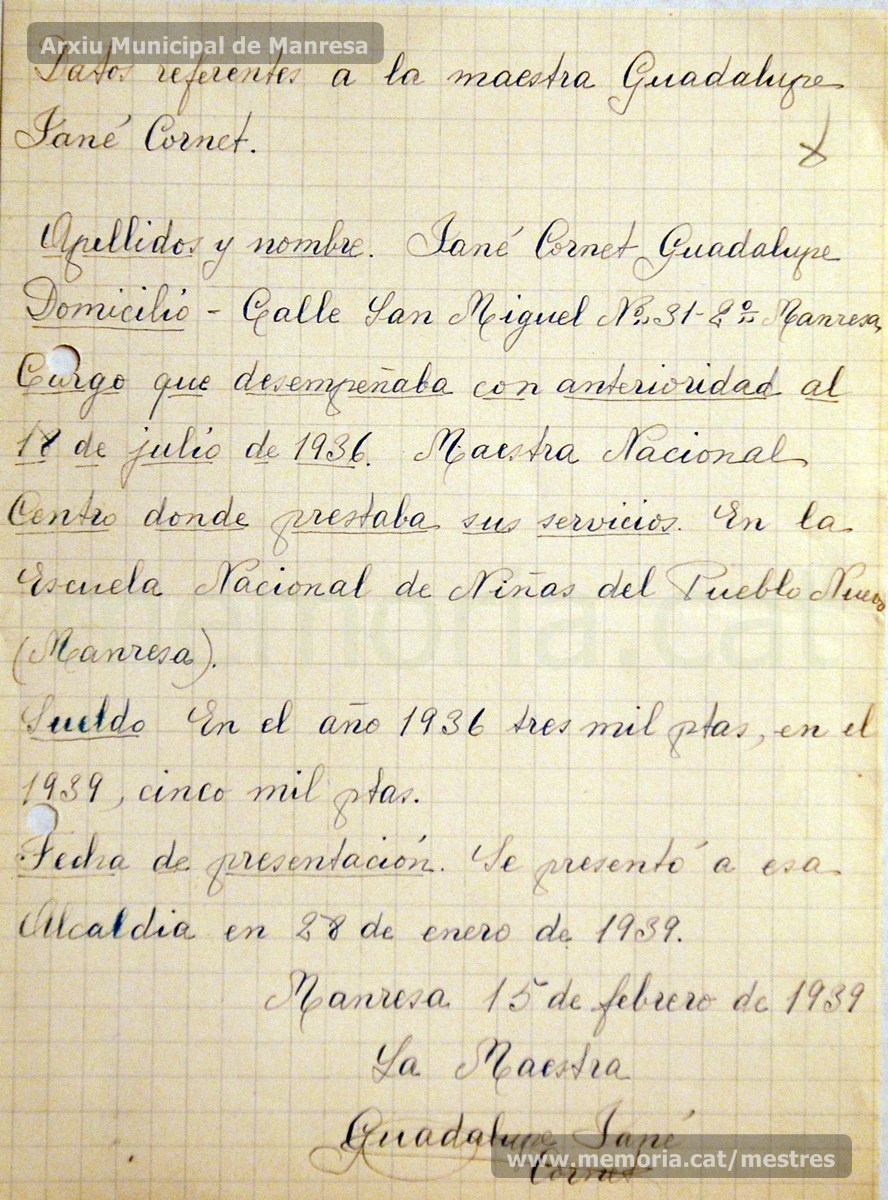 Arxiu Municipal de Manresa
Datos referentes a la maestra Guadalupe
Jané Cornet.
Apellidos y nombre. Jané Cornet Guadalupe
Domicilio - Calle San Miguel Nº 31-2º Manresa
Cargo que desempeñaba con anterioridad al
18 de julio de 1936. Maestra Nacional
Centro donde prestaba sus servicios. En la
Escuela Nacional de Niñas del Pueblo Nuevo
(Manresa).
Sueldo En el año 1936 tres mil ptas, en el
1939, cinco mil ptas.
Fecha de presentación. Se presentó a esa
Alcaldia en 28 de enero de 1939.
Manresa 15 de febrero de 1939
La Maestra
Guadalupe Jané
Cornet
www.memoria.cat/mestres